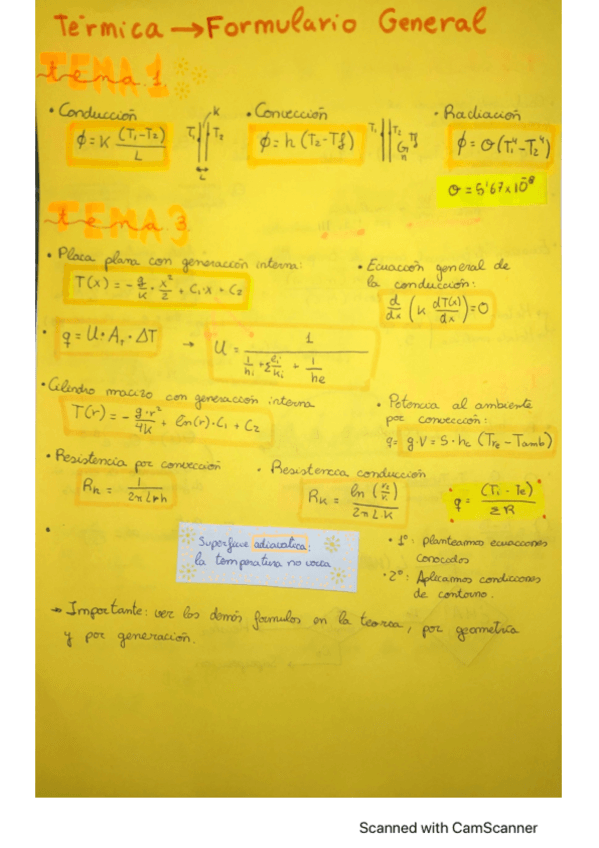 Térmica → Formulario General
TEMA 1
tema 1.
• Conducción
ϕ = K (T₁-T₂)/L
T₁ T₂
K
L
• Convección
ϕ = h (T₂-Tf)
T₁ T₂ Tf
h
• Radiación
ϕ = σ(T₁⁴-T₂⁴)
σ = 5'67x10⁻⁸
TEMA 3
tema 3.
• Placa plana con generación interna:
T(x) = - g/K · x²/2 + C₁·x + C₂
• Ecuación general de
la conducción:
d/dx (K dT(x)/dx) = 0
• q = U· A₁ · ΔT → U = 1 / (1/hi + Σ ei/ki + 1/he)
• Cilindro macizo con generación interna
T(r) = - g·r²/4K + ln(r)·C₁ + C₂
• Potencia al ambiente
por convección:
q = g·V = S·hc (Tre - Tamb)
• Resistencia por convección
Rh = 1/2πLrh
• Resistencia conducción
RK = ln (r₂/r₁) / 2πLK
• q = (Ti - Te)/ΣR
Superficie adiabatica:
la temperatura no varia
• 1º: planteamos ecuaciones
conocidas
• 2º: Aplicamos condiciones
de contorno.
→ Importante: ver los demás formulas en la teoria, por geometría
y por generación.
Scanned with CamScanner